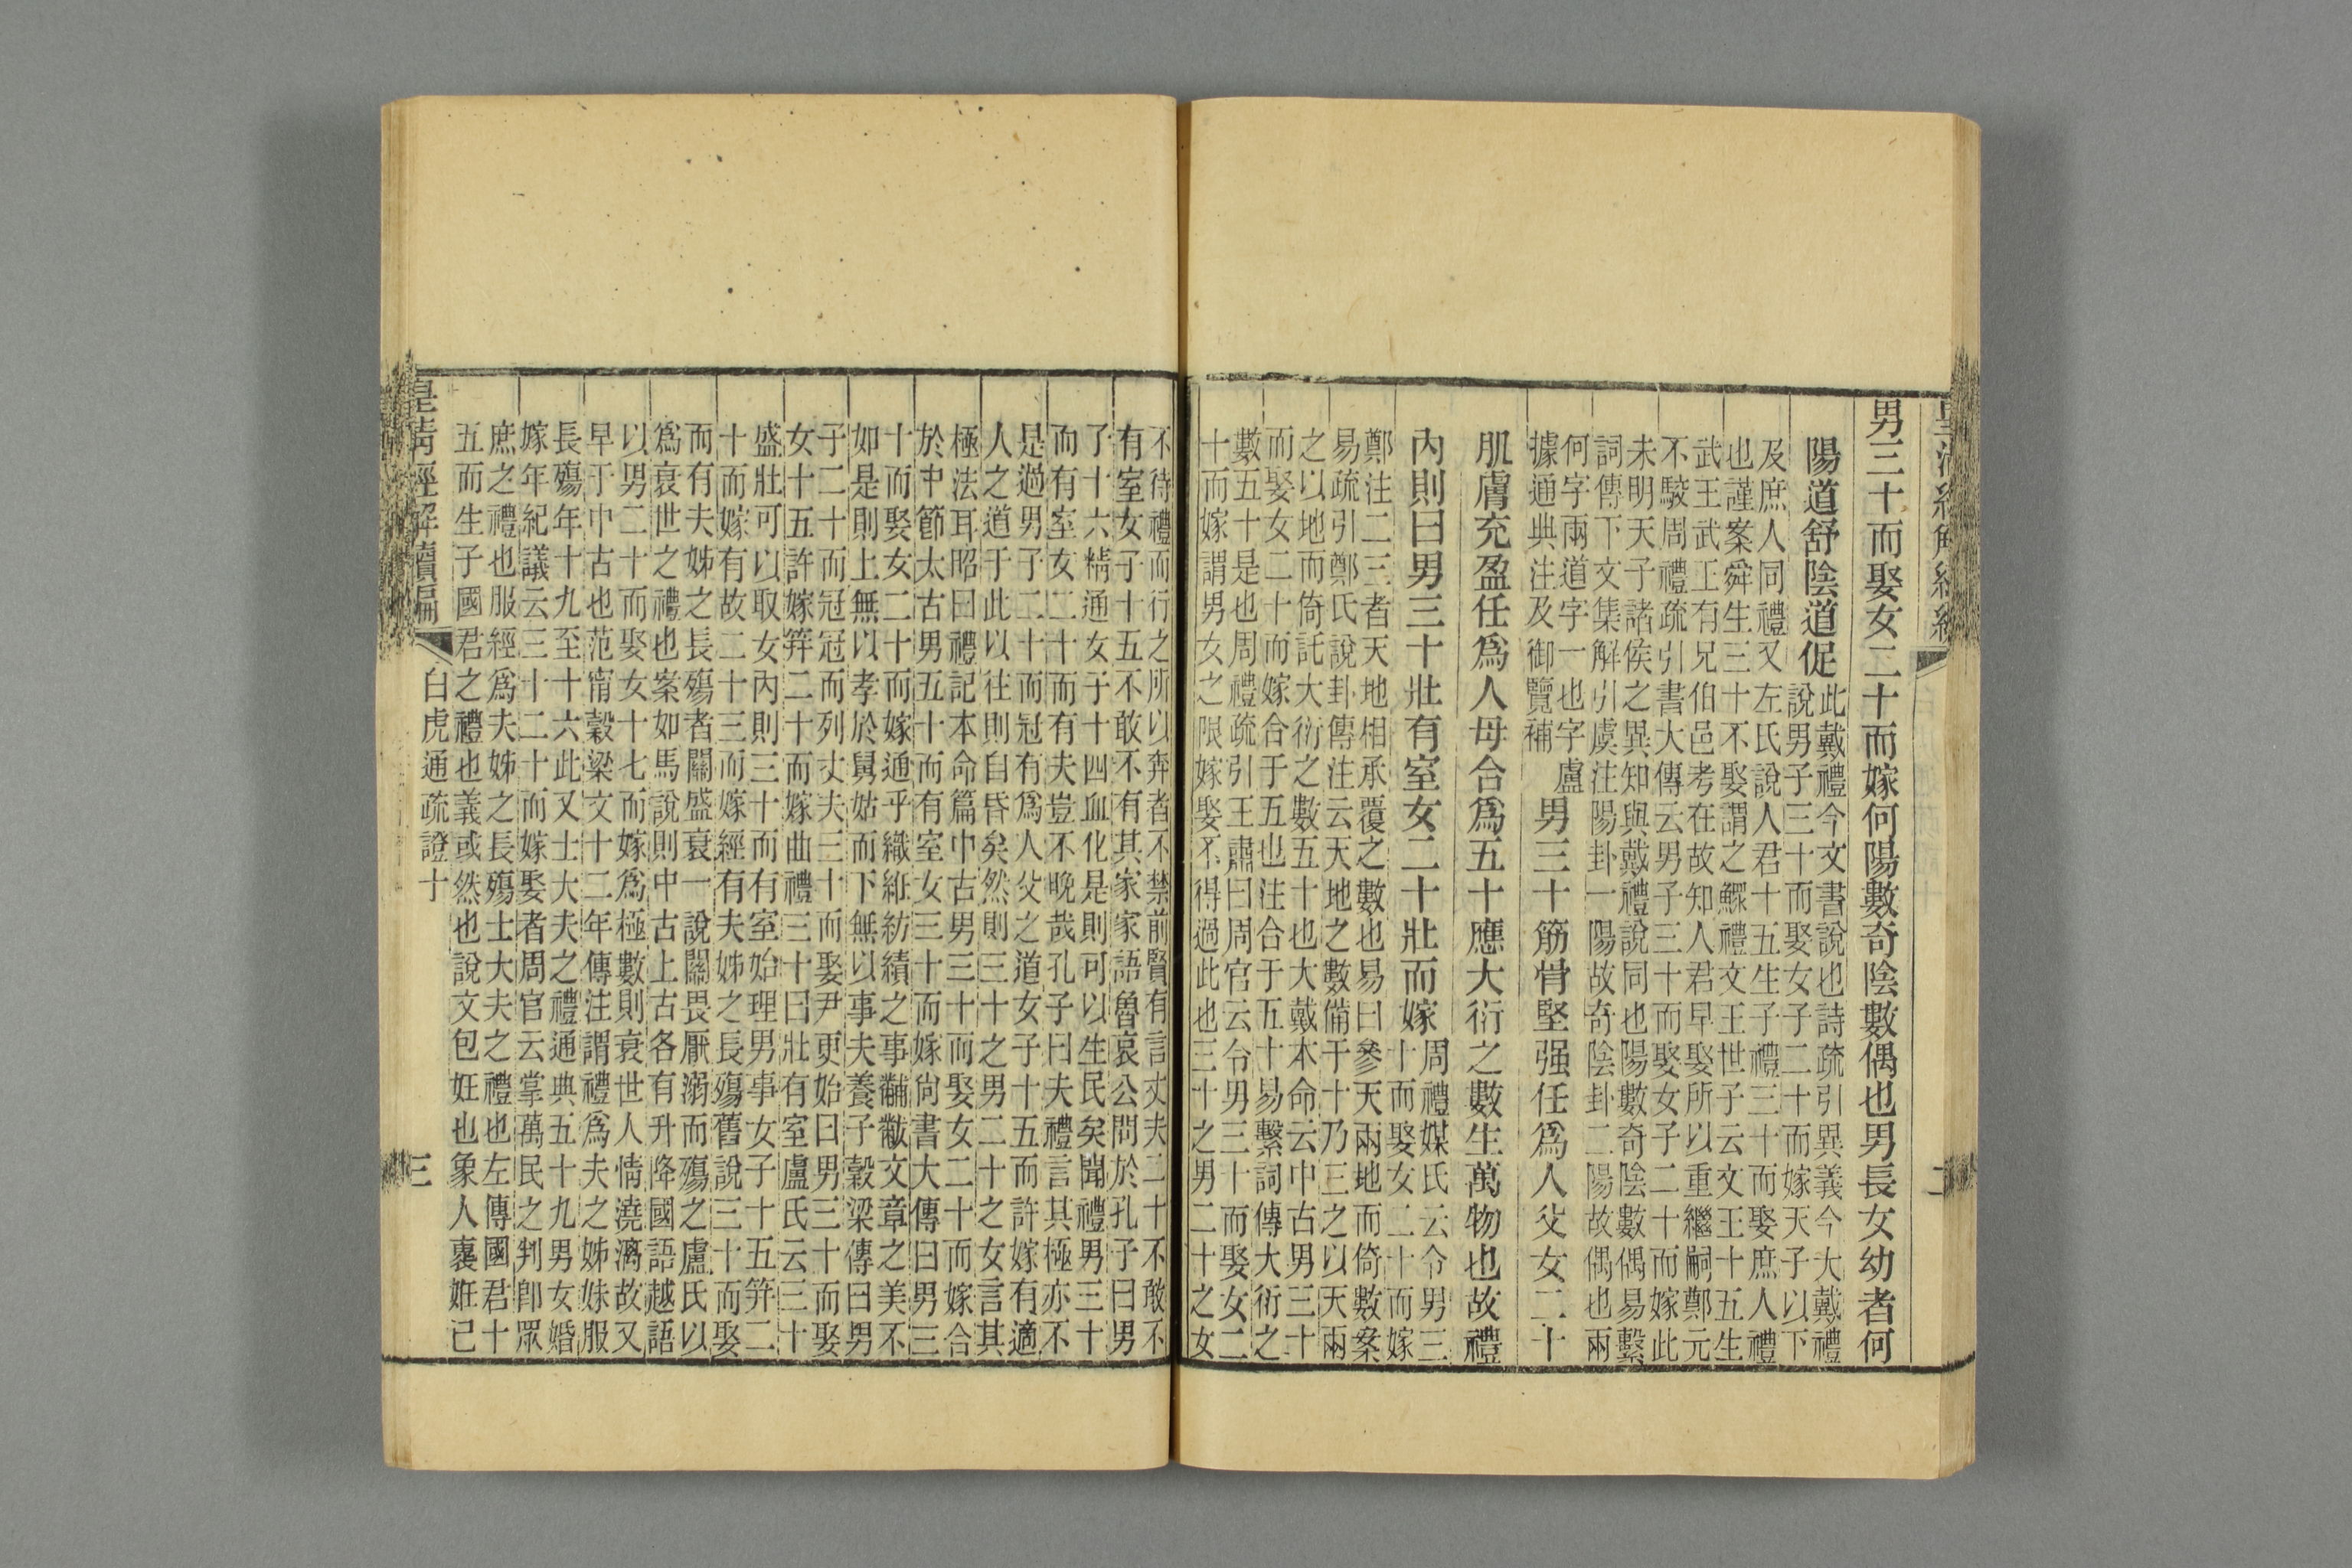 男三十而娶女二十而嫁何陽數奇陰數偶也男長女幼者何
陽道舒陰道促
此戴禮今文書說也詩疏引異義今大戴禮
說男子三十而娶女子二十而嫁天子以下
及庶人同禮又左氏說人君十五生子禮三十而娶庶人禮
也謹案舜生三十不娶謂之鰥禮文王世子云文王十五生
武王武王有兄伯邑考在故知人君早娶所以重繼嗣鄭元
不駮周禮疏引書大傳云男子三十而娶女子二十而嫁此
未明天子諸侯之異知與戴禮說同也陽數奇陰數偶易繫
詞傳下文集解引虞注陽卦一陽故奇陰卦二陽故偶也兩
何字兩道字一也字盧
據通典注及御覽補
男三十筋骨堅强任爲人父女二十
肌膚充盈任爲人母合爲五十應大衍之數生萬物也故禮
內則曰男三十壯有室女二十壯而嫁
周禮媒氏云令男三
十而娶女二十而嫁
鄭注二三者天地相承覆之數也易曰參天兩地而倚數案
易疏引鄭氏說卦傳注云天地之數備于十乃三之以天兩
之以地而倚託大衍之數五十也大戴本命云中古男三十
而娶女二十而嫁合于五也注合于五十易繫詞傳大衍之
數五十是也周禮疏引王肅曰周官云令男三十而娶女二
十而嫁謂男女之限嫁娶不得過此也三十之男二十之女
不待禮而行之所以奔者不禁前賢有言丈夫二十不敢不
有室女子十五不敢不有其家家語魯哀公問於孔子曰男
子十六精通女子十四血化是則可以生民矣聞禮男三十
而有室女二十而有夫豈不晚哉孔子曰夫禮言其極亦不
是過男子二十而冠有爲人父之道女子十五而許嫁有適
人之道于此以往則自昏矣然則三十之男二十之女言其
極法耳昭曰禮記本命篇中古男三十而娶女二十而嫁合
於中節太古男五十而有室女三十而嫁尙書大傳曰男三
十而娶女二十而嫁通乎織紝紡績之事黼黻文章之美不
如是則上無以孝於舅姑而下無以事夫養子穀梁傳曰男
子二十而冠冠而列丈夫三十而娶尹更始曰男三十而娶
女十五許嫁笄二十而嫁曲禮三十曰壯有室盧氏云三十
盛壯可以取女內則三十而有室始理男事女子十五笄二
十而嫁有故二十三而嫁經有夫姊之長殤舊說三十而娶
而有夫姊之長殤者關盛衰一說關畏厭溺而殤之盧氏以
爲衰世之禮也案如馬說則中古上古各有升降國語越語
以男二十而娶女十七而嫁爲極數則衰世人情澆漓故又
早于中古也范甯穀梁文十二年傳注謂禮爲夫之姊妹服
長殤年十九至十六此又士大夫之禮通典五十九男女婚
嫁年紀議云三十二十而嫁娶者周官云掌萬民之判卽眾
庶之禮也服經爲夫姊之長殤士大夫之禮也左傳國君十
五而生子國君之禮也義或然也說文包妊也象人褢妊已
皇清經解續編
白虎通疏證十
三